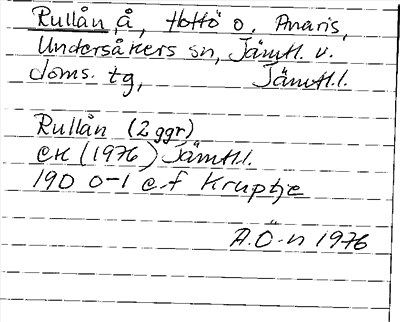 Rullån, å, Hottö o. Anaris,
Undersåkers sn, Jämtl. v.
doms. tg, Jämtl.l.
Rullån (2 ggr)
CK (1976) Jämtl.l.
19D 0-1 e.f Kruptje
A.Ö-n 1976